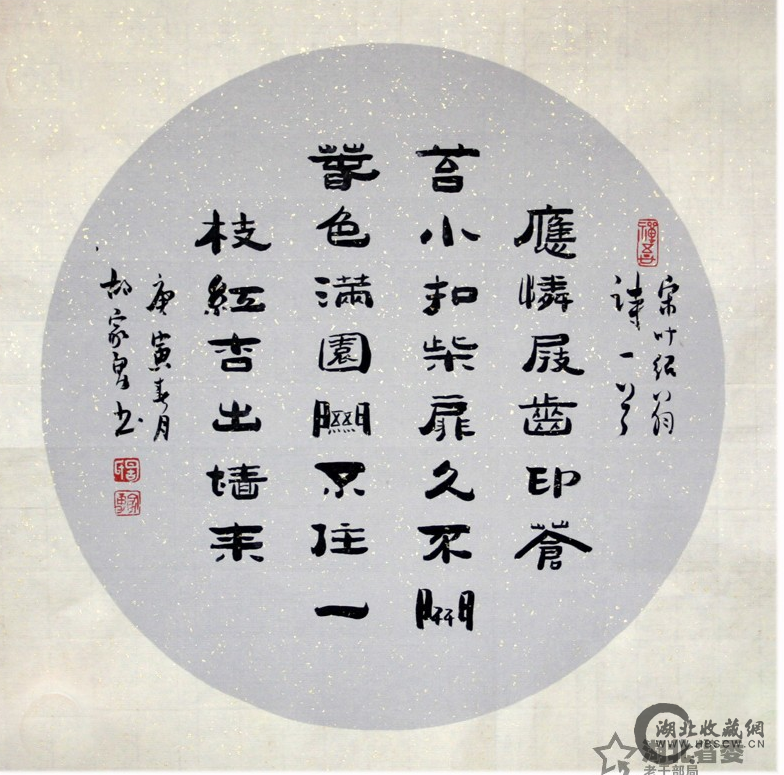 宋叶紹翁
詩一首
應憐屐齒印蒼
苔小扣柴扉久不開
萅色滿園關不住一
枝紅杏出墙来
庚寅春月
胡家书
湖北收藏網
WWW.HBSCW.CN
湖北省委
老干部局